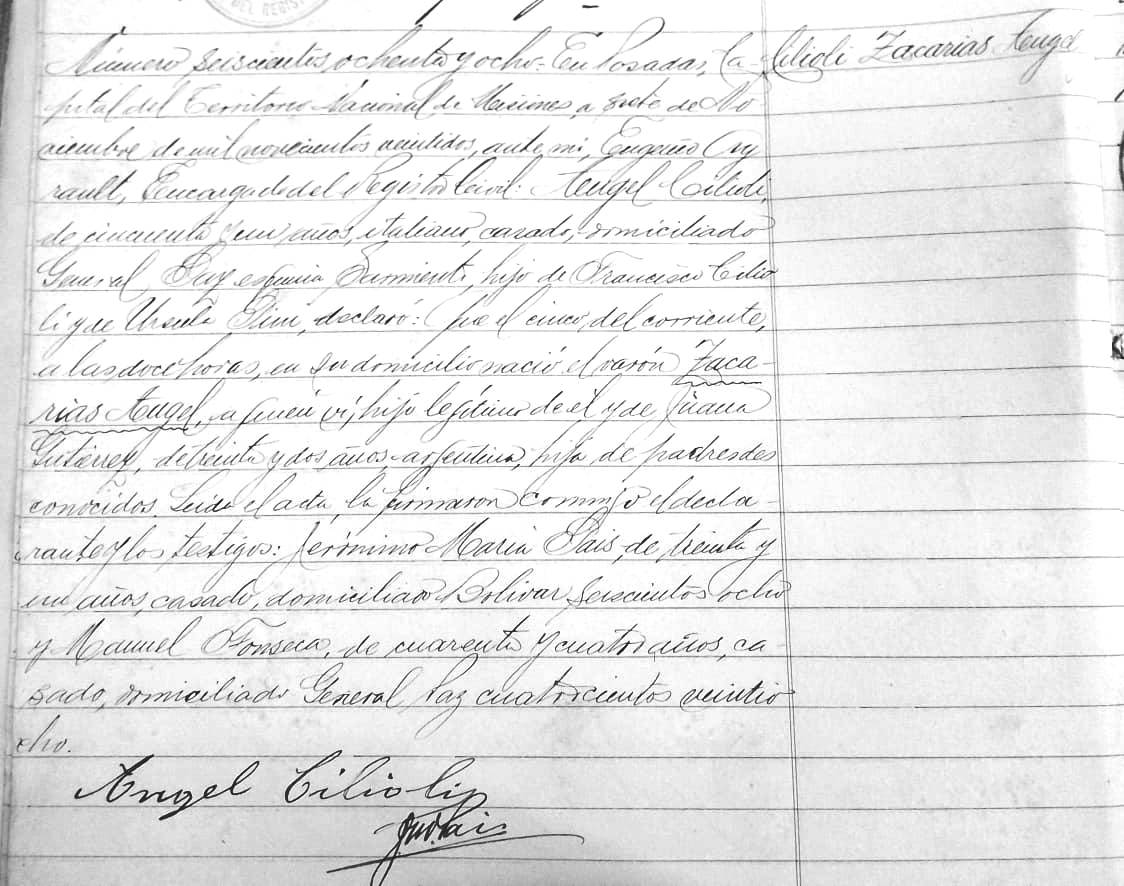 DEL REGIST
Número seiscientos ochenta y ocho. En Posadas, Ca-
Cilioli Zacarias Angel
pital del Territorio Nacional de Misiones, a siete de No-
viembre de mil novecientos veintidos, ante mi, Eugenio Ay
rault, Encargado del Registro Civil: Angel Cilioli,
de cincuenta y un años, italiano, casado, domiciliado
General Paz esquina Sarmiento, hijo de Francisco Cilio
li y de Ursula, declaró: Que el cinco del corriente,
a las doce horas, en su domicilio nació el varón Zaca-
rias Angel, a quien ví, hijo legítimo de él y de Juana
Gutiérrez, de treinta y dos años, argentina, hija de padres des
conocidos. Leida el acta, la firmaron conmigo el decla-
rante y los testigos: Jerónimo Maria Pais, de treinta y
un años, casado, domiciliado Bolivar seiscientos ocho
y Manuel Fonseca, de cuarenta y cuatro años, ca-
sado, domiciliado General Paz cuatrocientos veintio
cho.
Angel Cilioli
Pais